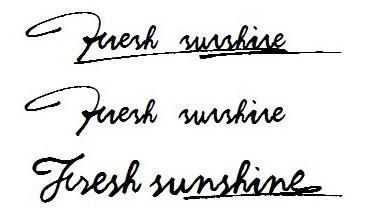 Fresh sunshine
Fresh sunshine
Fresh sunshine